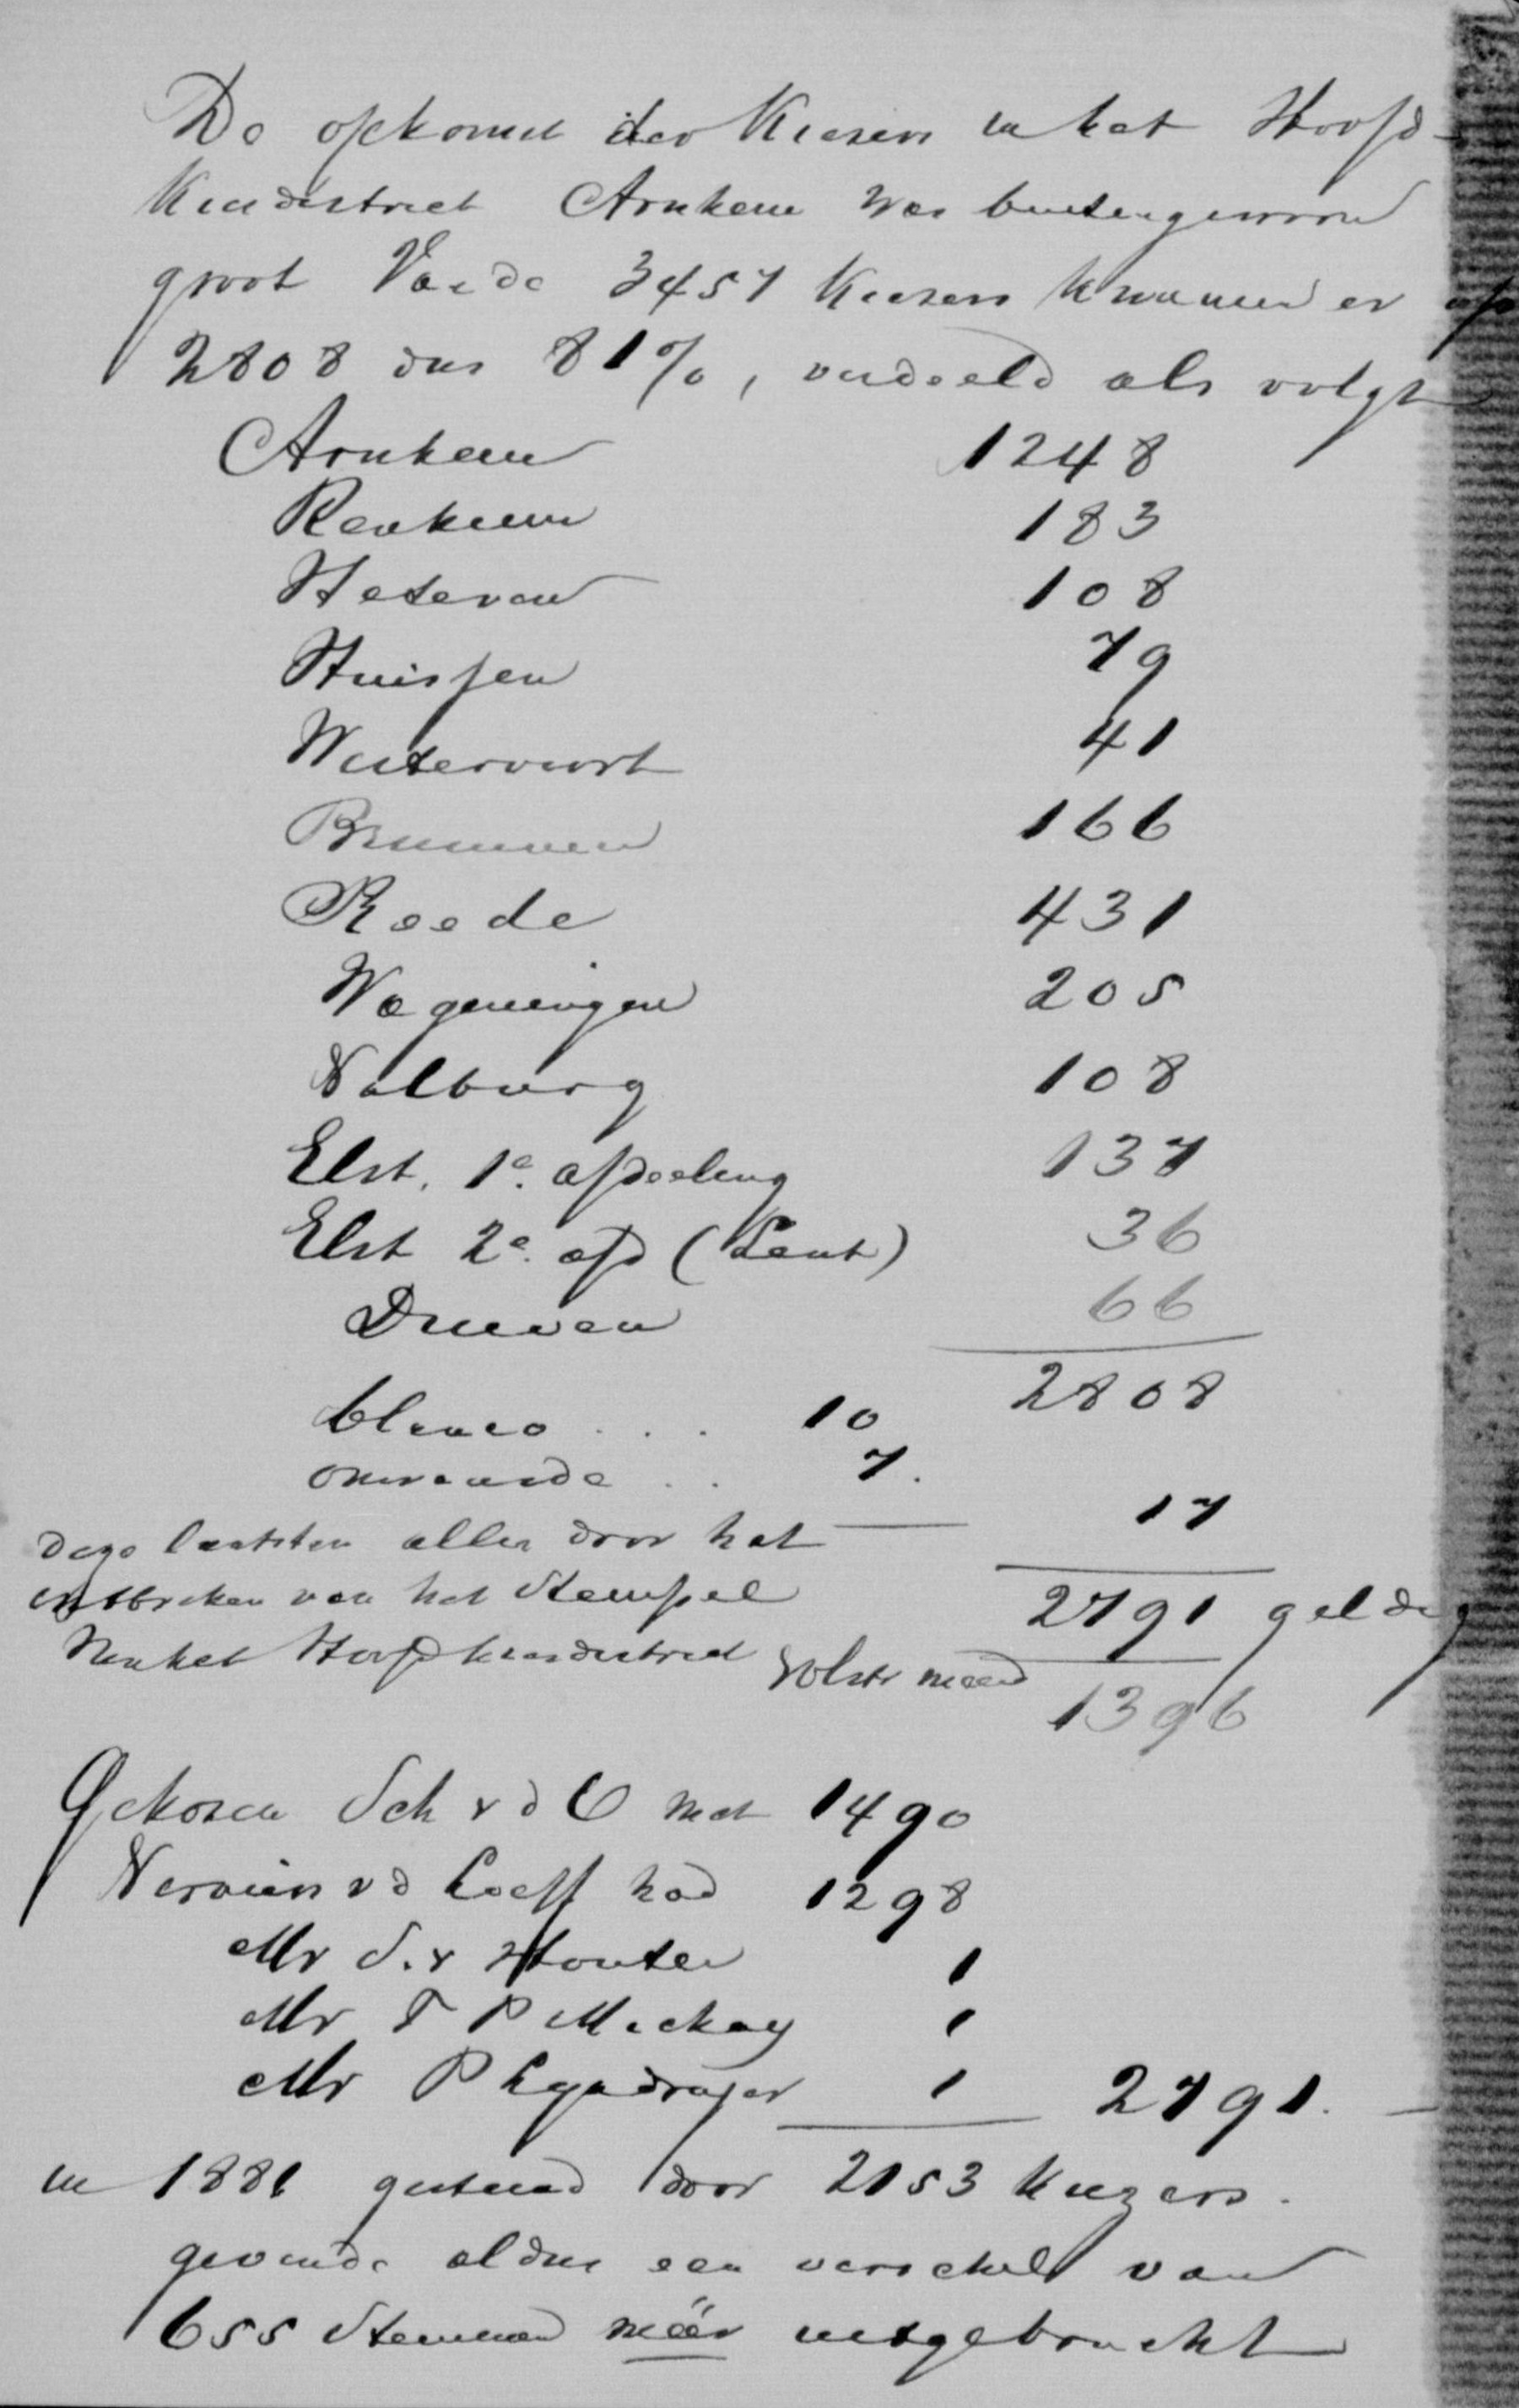 De opkomst der Kiezers in het Hoofd-
Kiesdistrict Arnhem was buitengewoon
groot Van de 3457 Kiezers kwamen er op
2808 dus 81%, verdeeld als volgt
Arnhem 1248
Renkum 183
Heteren 108
Huissen 79
Westervoort 41
Brummen 166
Reede 431
Wageningen 205
Valburg 108
Elst. 1e. afdeeling 137
Elst 2e. afd (Lent) 36
Duiven 66
2808
blanco . . . 10
onwaarde . . 7.
17
deze laatsten allen door het
ontbreken van het Stempel
van het Hoofdkiesdistrict
2791 geldig
Volstr meerd 1396
Gekozen Sch v d O met 1490
Verniers vd Loeff had 1298
Mr S. v Houten 1
Mr T P Mackay 1
Mr P Lycadrager 1 2791. -
in 1881 gestemd door 2153 kiezers.
gevende aldus een verschil van
655 Stemmen méér uitgebracht